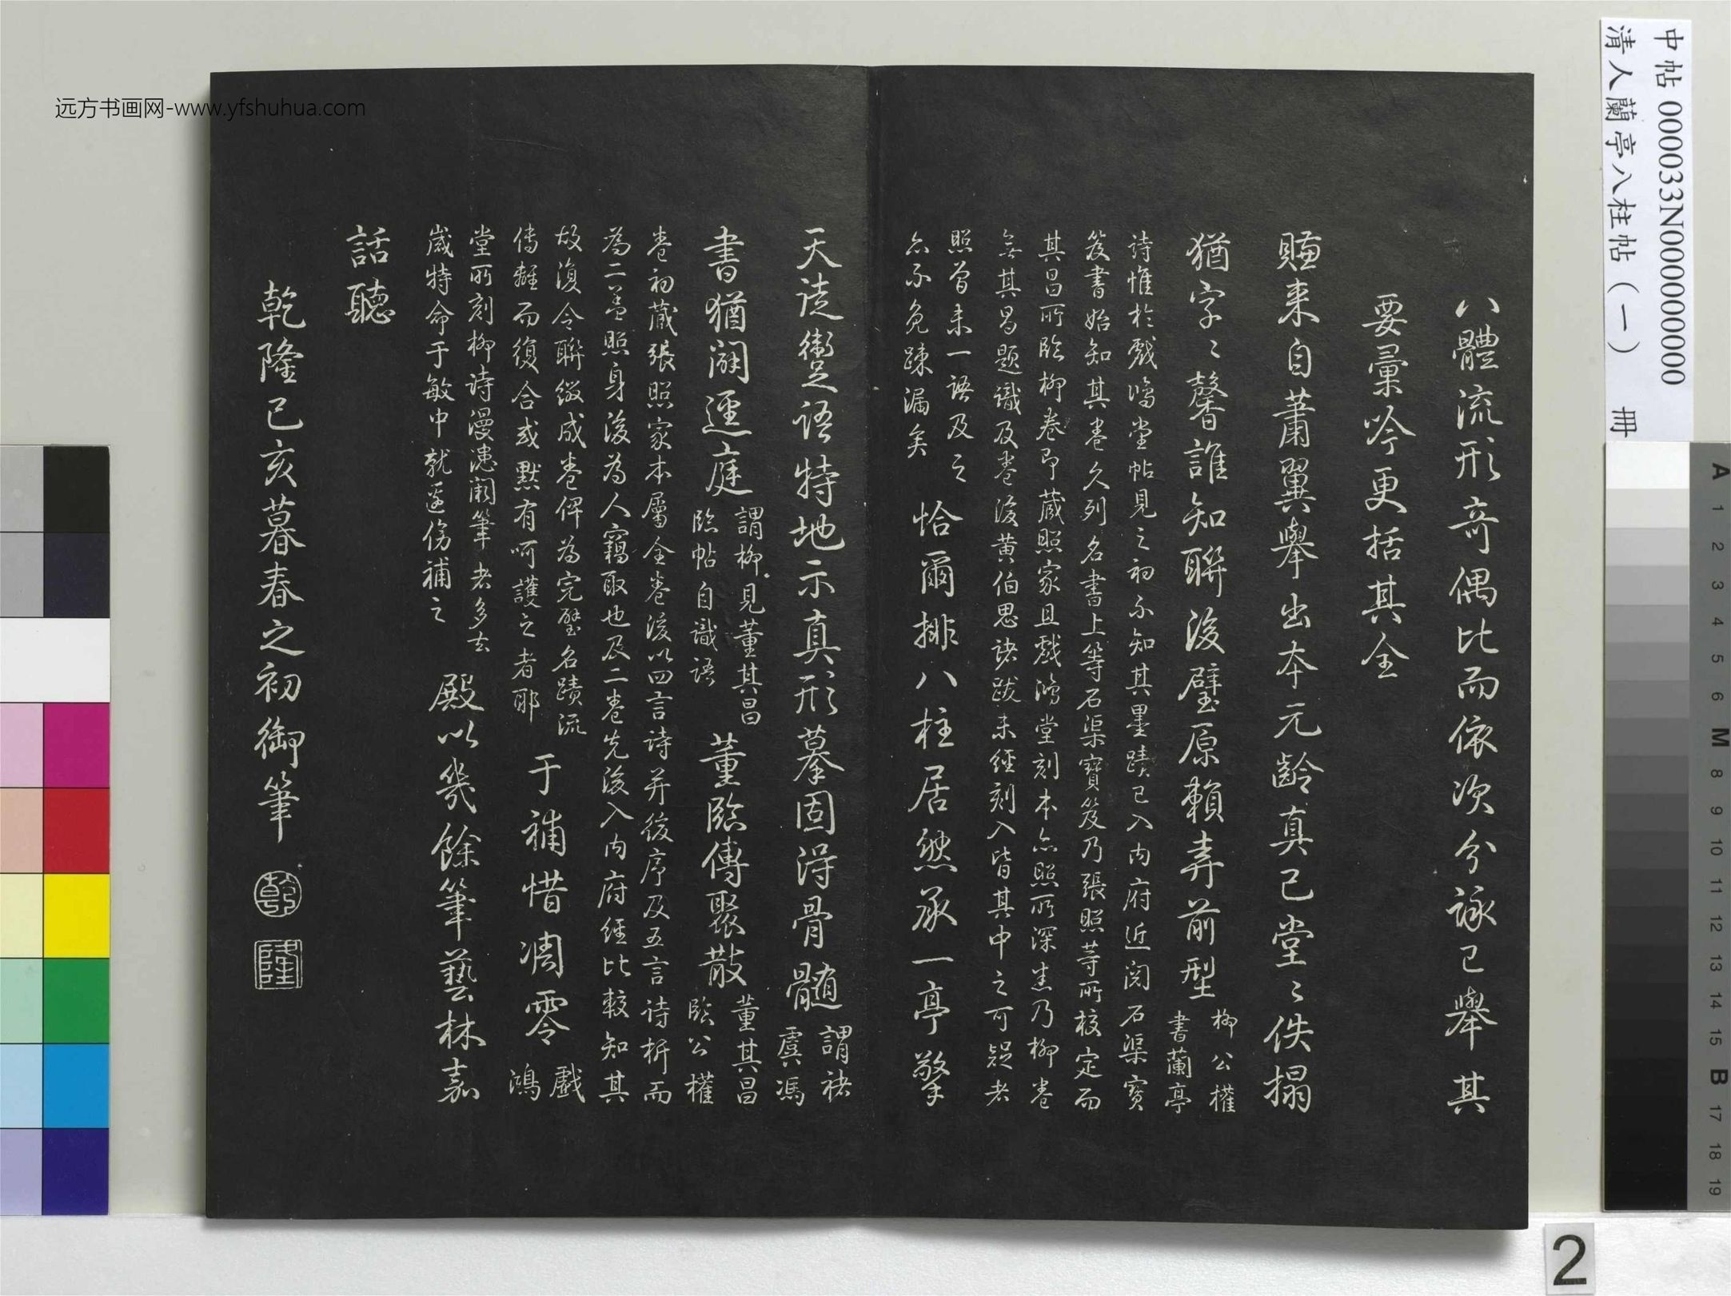 八體流形奇偶比而依次分詠已舉其
要彙吟更括其全
賺来自蕭翼舉出夲元齡真已堂〻佚搨
猶字〻馨誰知聯後璧原賴弆前型
柳公權
書蘭亭
詩惟於戲鴻堂帖見之初不知其墨蹟已入内府近閲石渠寳
笈書始知其卷久列名書上等石渠寶笈乃張照等所校定而
其昌所臨柳卷即藏照家且戲鴻堂刻本亦照所深悉乃柳卷
無其昌題識及卷後黄伯思諸跋未經刻入皆其中之可疑者
照曾未一語及之
亦不免踈漏矣
恰爾排八柱居然承一亭擎
天徒躗語特地示真形摹固得骨髄
謂褚
虞馮
書猶闢逕庭
謂柳見董其昌
臨帖自識語
董臨傳聚散
董其昌
臨公權
卷初藏張照家本屬全卷後以四言詩并後序及五言詩析而
為二益照身後為人竊取也及二卷先後入内府經比較知其
故復令聯綴成卷俾為完璧名蹟流
傳離而復合或默有呵護之者耶
于補惜凋零
戲
鴻
堂所刻柳詩漫漶闕筆者多去
嵗特命于敏中就邊傍補之
殿以幾餘筆藝林嘉
話聽
乾隆己亥暮春之初御筆
乾
隆
中帖 000033N000000000
清人蘭亭八柱帖（一） 冊
远方书画网-www.yfshuhua.com
A
1
2
3
4
5
6
M
8
9
10
11
12
13
14
15
B
17
18
19
2